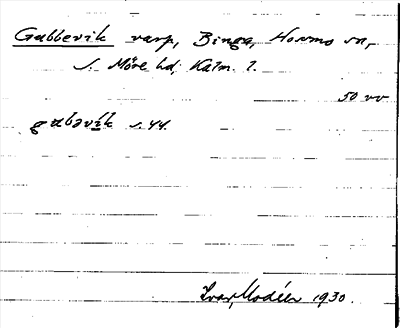 Gabbevik varp, Binga, Hossmo sn,
S. Möre hd, Kalm. l.
50 vv
gabəvik s. 44.
Ivar Modéer 1930.